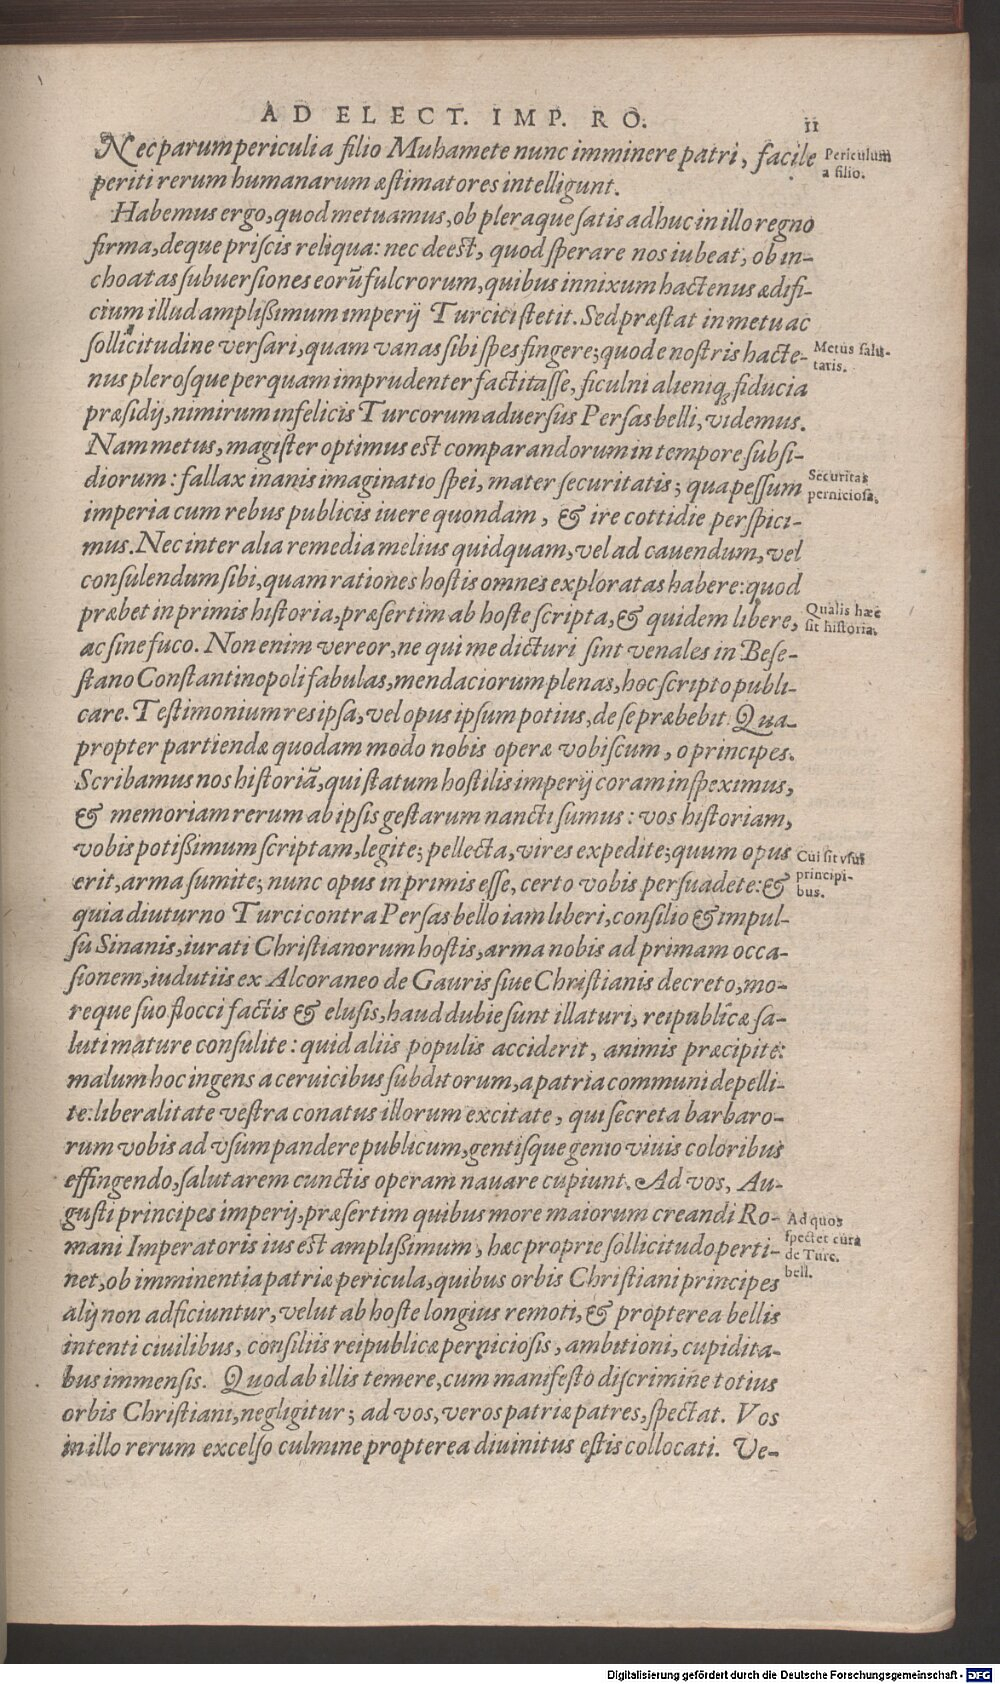 AD ELECT. IMP. RO. 11
Nec parum periculi a filio Muhamete nunc imminere patri, facile
periti rerum humanarum æstimatores intelligunt.
Periculum
a filio.
Habemus ergo, quod metuamus, ob pleraque satis adhuc in illo regno
firma, deque priscis reliqua: nec deest, quod sperare nos iubeat, ob in-
choatas subuersiones eorũ fulcrorum, quibus innixum hactenus ædifi-
cium illud amplißimum imperij Turcici stetit. Sed præstat in metu ac
sollicitudine versari, quam vanas sibi spes fingere; quod e nostris hacte-
nus plerosque perquam imprudenter factitasse, ficulni alieniq; fiducia
præsidij, nimirum infelicis Turcorum aduersus Persas belli, videmus.
Metus salu-
taris.
Nam metus, magister optimus est comparandorum in tempore subsi-
diorum: fallax inanis imaginatio spei, mater securitatis; qua pessum
imperia cum rebus publicis iuere quondam, & ire cottidie perspici-
Securitas
perniciosa.
mus. Nec inter alia remedia melius quidquam, vel ad cauendum, vel
consulendum sibi, quam rationes hostis omnes exploratas habere: quod
præbet in primis historia, præsertim ab hoste scripta, & quidem libere,
ac sine fuco. Non enim vereor, ne qui me dicturi sint venales in Bese-
Qualis hæc
sit historia.
stano Constantinopoli fabulas, mendaciorum plenas, hoc scripto publi-
care. Testimonium res ipsa, vel opus ipsum potius, de se præbebit. Qua-
propter partiendæ quodam modo nobis operæ vobiscum, o principes.
Scribamus nos historiã, qui statum hostilis imperij coram inspeximus,
& memoriam rerum ab ipsis gestarum nancti sumus: vos historiam,
vobis potißimum scriptam, legite; pellecta, vires expedite; quum opus
erit, arma sumite; nunc opus in primis esse, certo vobis persuadete: &
Cui sit vsui
principi-
bus.
quia diuturno Turci contra Persas bello iam liberi, consilio & impul-
su Sinanis, iurati Christianorum hostis, arma nobis ad primam occa-
sionem, indutiis ex Alcoraneo de Gauris siue Christianis decreto, mo-
reque suo flocci factis & elusis, haud dubie sunt illaturi, reipublicæ sa-
luti mature consulite: quid aliis populis acciderit, animis præcipite:
malum hoc ingens a ceruicibus subditorum, a patria communi depelli-
te: liberalitate vestra conatus illorum excitate, qui secreta barbaro-
rum vobis ad vsum pandere publicum, gentisque genio viuis coloribus
effingendo, salutarem cunctis operam nauare cupiunt. Ad vos, Au-
gusti principes imperij, præsertim quibus more maiorum creandi Ro-
mani Imperatoris ius est amplißimum, hæc proprie sollicitudo perti-
net, ob imminentia patriæ pericula, quibus orbis Christiani principes
Ad quos
spectet cura
de Turc.
bell.
alij non adficiuntur, velut ab hoste longius remoti, & propterea bellis
intenti ciuilibus, consiliis reipublicæ perniciosis, ambitioni, cupidita-
bus immensis. Quod ab illis temere, cum manifesto discrimine totius
orbis Christiani, negligitur; ad vos, veros patriæ patres, spectat. Vos
in illo rerum excelso culmine propterea diuinitus estis collocati. Ve-
Digitalisierung gefördert durch die Deutsche Forschungsgemeinschaft - DFG